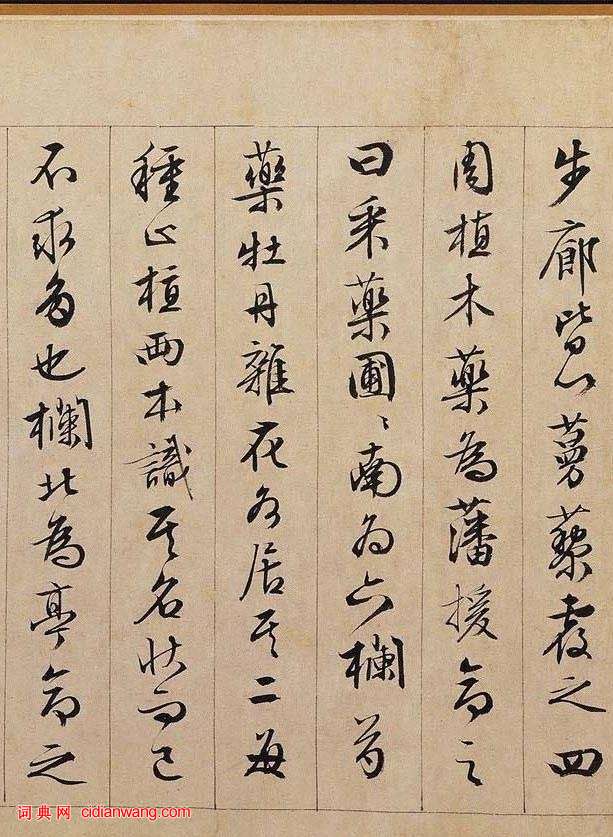 步廊皆以蔓藥覆之四
周植木藥為藩援命之
曰采藥圃〻南為六欄芍
藥牡丹雜花各居其二每
種止植兩本識其名狀而已
不求多也欄北為亭命之
词典网 cidianwang.com